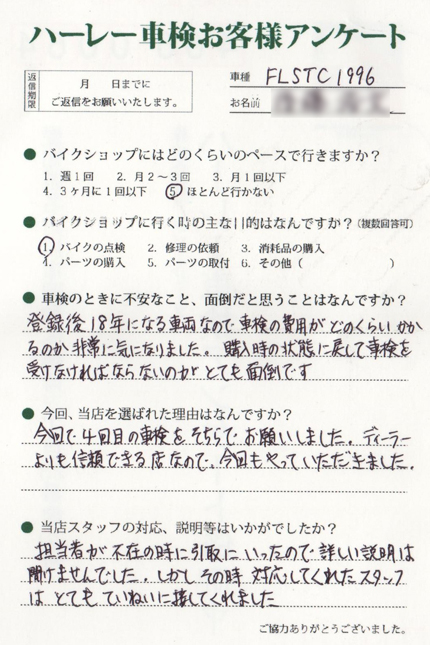 ハーレー車検お客様アンケート
返信期限
月　日までに
ご返信をお願いいたします。
車種 FLSTC 1996
お名前
● バイクショップにはどのくらいのペースで行きますか？
1. 週1回　2. 月2～3回　3. 月1回以下
4. 3ヶ月に1回以下　5. ほとんど行かない
● バイクショップに行く時の主な目的はなんですか？（複数回答可）
1. バイクの点検　2. 修理の依頼　3. 消耗品の購入
4. パーツの購入　5. パーツの取付　6. その他（　　　）
● 車検のときに不安なこと、面倒だと思うことはなんですか？
登録後18年になる車両なので車検の費用がどのくらいかか
るのか非常に気になりました。購入時の状態に戻して車検を
受けなければならないのがとても面倒です
● 今回、当店を選ばれた理由はなんですか？
今回で4回目の車検をそちらでお願いしました。ディーラー
よりも信頼できる店なので、今回もやっていただきました。
● 当店スタッフの対応、説明等はいかがでしたか？
担当者が不在の時に引取にいったので詳しい説明は
聞けませんでした。しかしその時対応してくれたスタッフ
はとてもていねいに接してくれました
ご協力ありがとうございました。